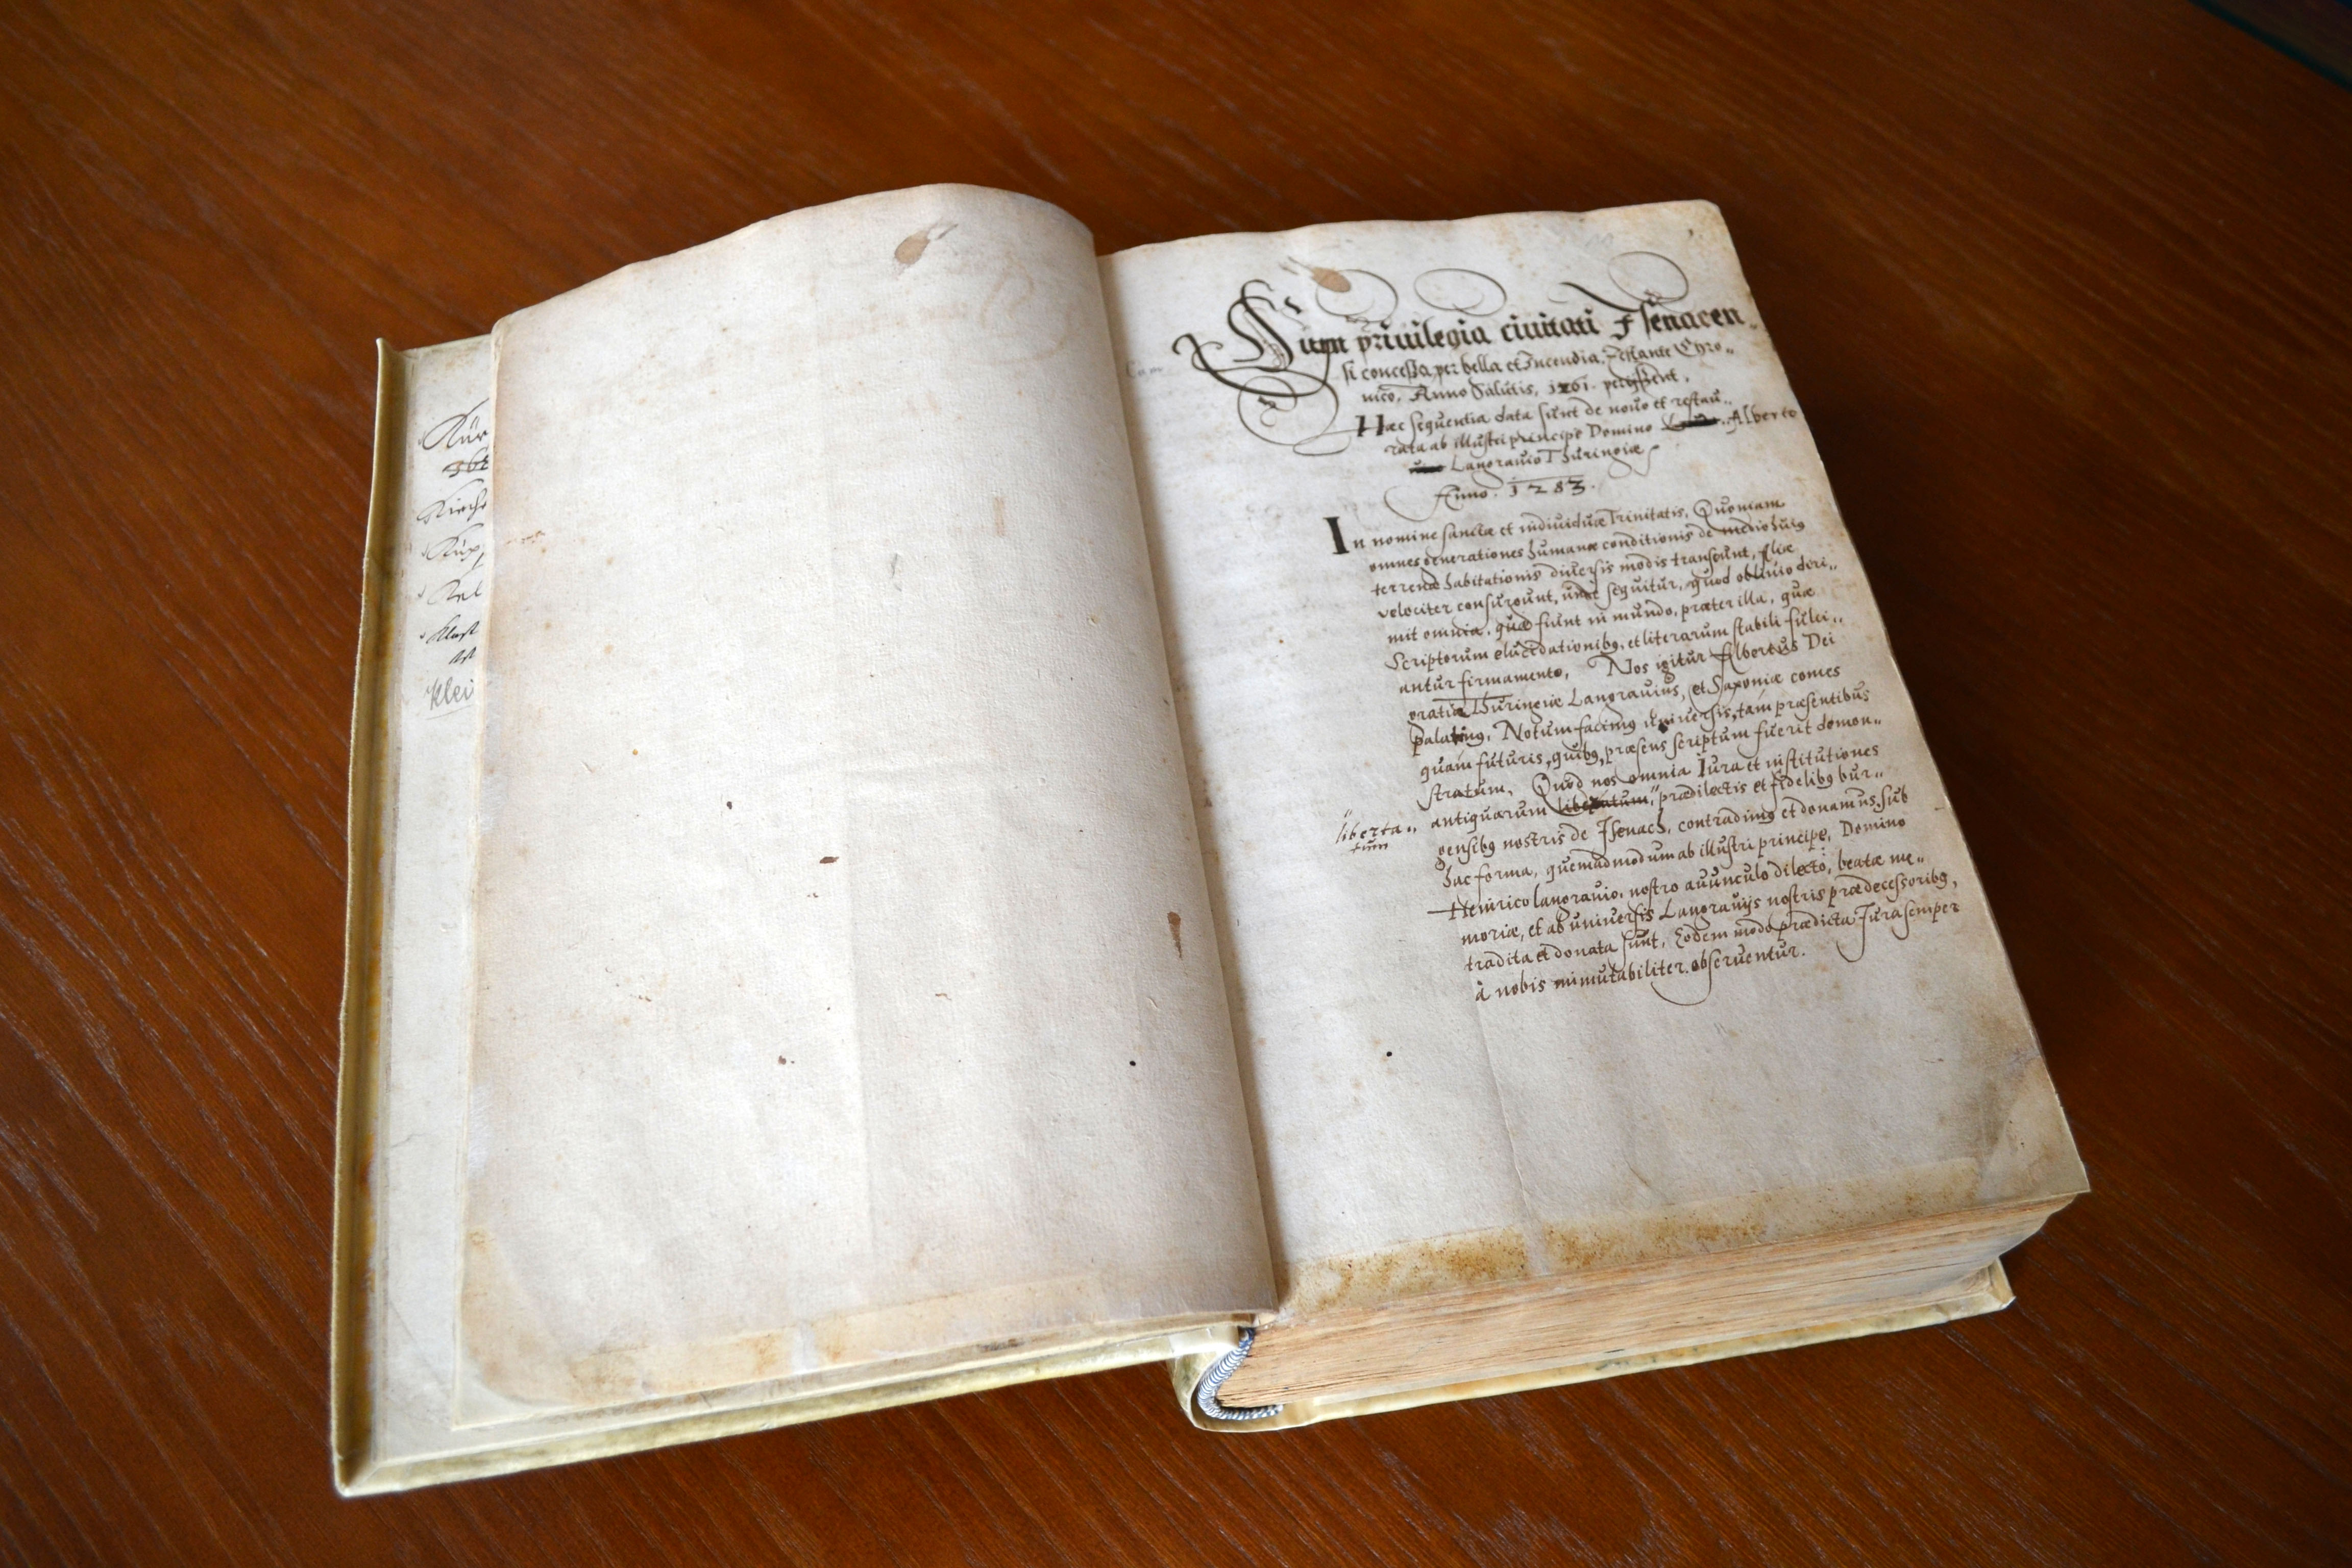 Kür
362
Kirch
Küp
Kel
klost
klei
Cum
Cum priuilegia ciuitati Isenacen„
si concessa, per bella et Incendia, Testante Cyro„
nico, Anno Salutis, 1261. perijssent.
Hæc sequentia data sunt de nouo et restau„
rata ab illustri principe Domino Alberto
Langrauio Thuringiæ
Anno. 1283.
In nomine sanctæ et indiuiduæ Trinitatis, Quoniam
omnes generationes humanæ conditionis de medio huiꝯ
terrenæ habitationis diuersis modis transeunt, aliæ
velociter consurgunt, unde sequitur, quod obliuio deri„
mit omnia, quæ fiunt in mundo, præter illa, quæ
Scriptorum elucidationibꝯ, et literarum stabili fulci„
antur firmamento, Nos igitur Albertus Dei
gratia Thuringiæ Langrauius, et Saxoniæ comes
palatinꝯ, Notum facimꝯ uniuersis, tam præsentibus
quam futuris, quibꝯ, præsens scriptum fuerit demon„
stratum, Quod nos omnia Iura et institutiones
antiquarum libertatum, prædilectis et fidelibꝯ bur„
liberta„
tum
gensibꝯ nostris de Isenach, contradimꝯ et donamus, sub
hac forma, quemadmodum ab illustri principe, Domino
Heinrico langrauio, nostro auunculo dilecto, beatæ me„
moriæ, et ab uniuersis Langrauijs nostris prædecessoribꝯ,
tradita et donata sunt, Eodem modo prædicta Iura semper
à nobis immutabiliter obseruentur.